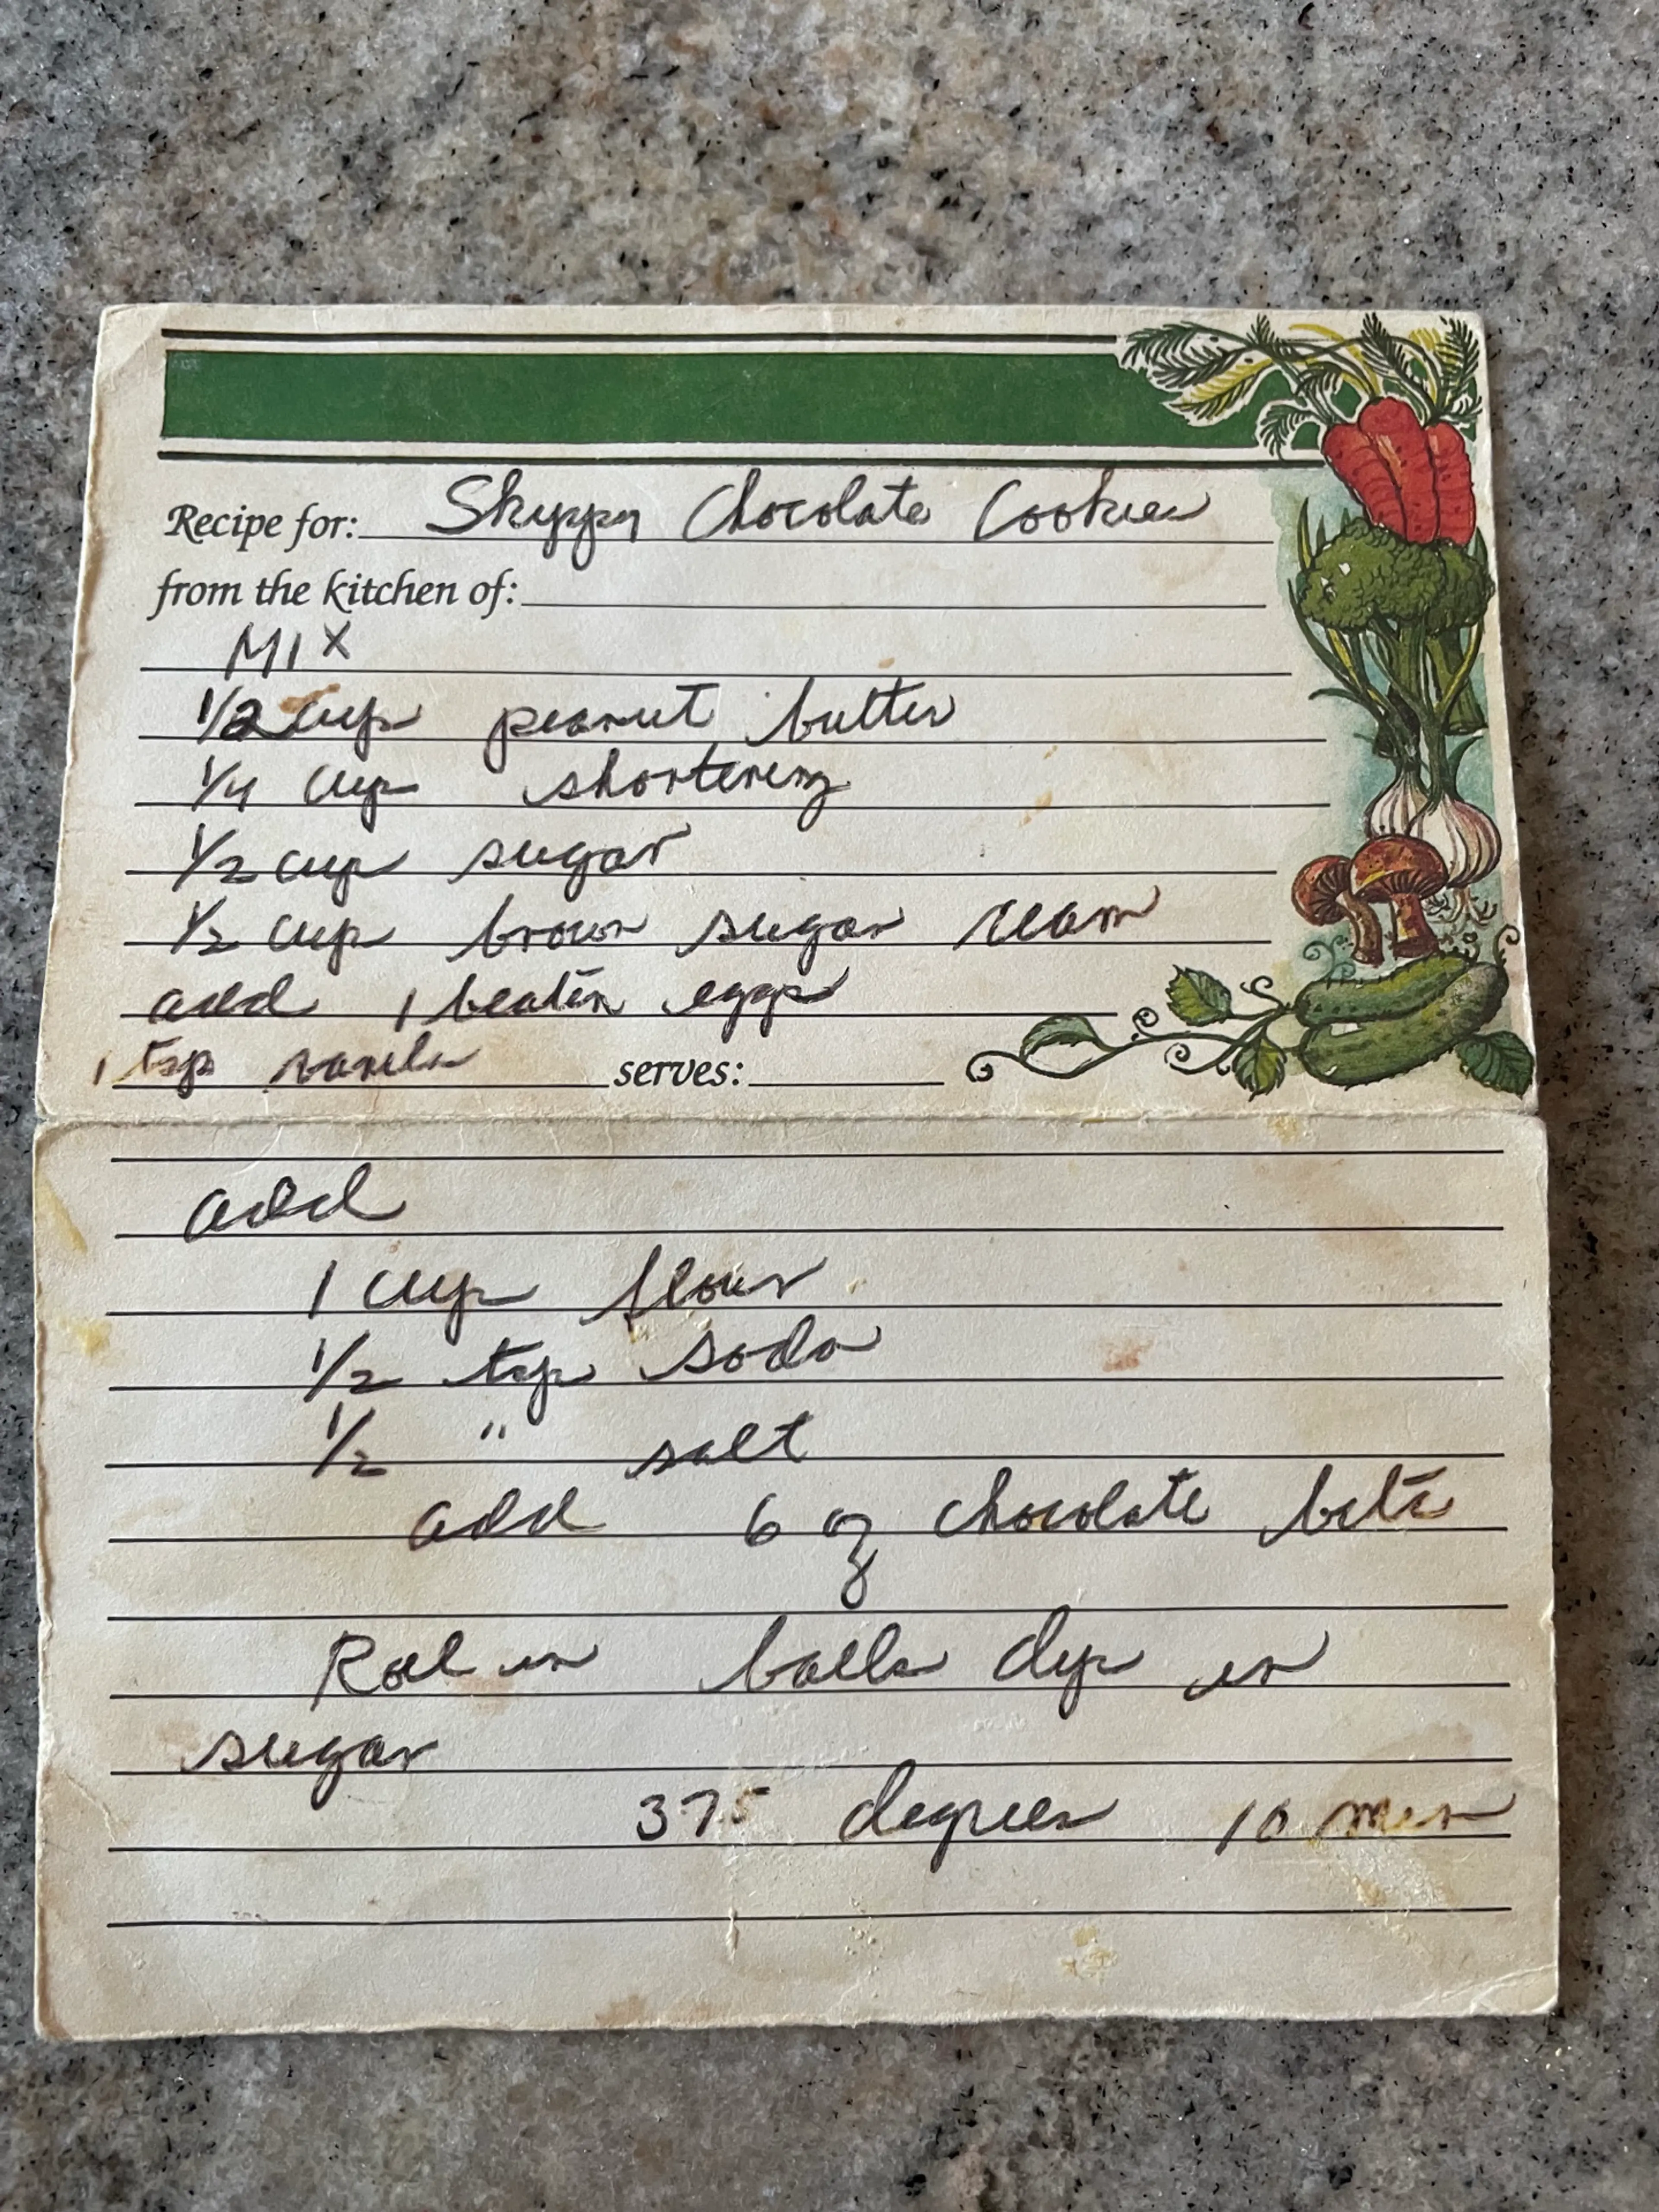 Recipe for: Skippy Chocolate Cookies
from the kitchen of:
MIX
1/2 cup peanut butter
1/4 cup shortening
1/2 cup sugar
1/2 cup brown sugar cream
add 1 beaten eggs
1 tsp vanila
serves:
add
1 cup flour
1/2 tsp soda
1/2 " salt
add 6 oz chocolate bits
Roll in balls dip in
sugar
375 degrees 10 min